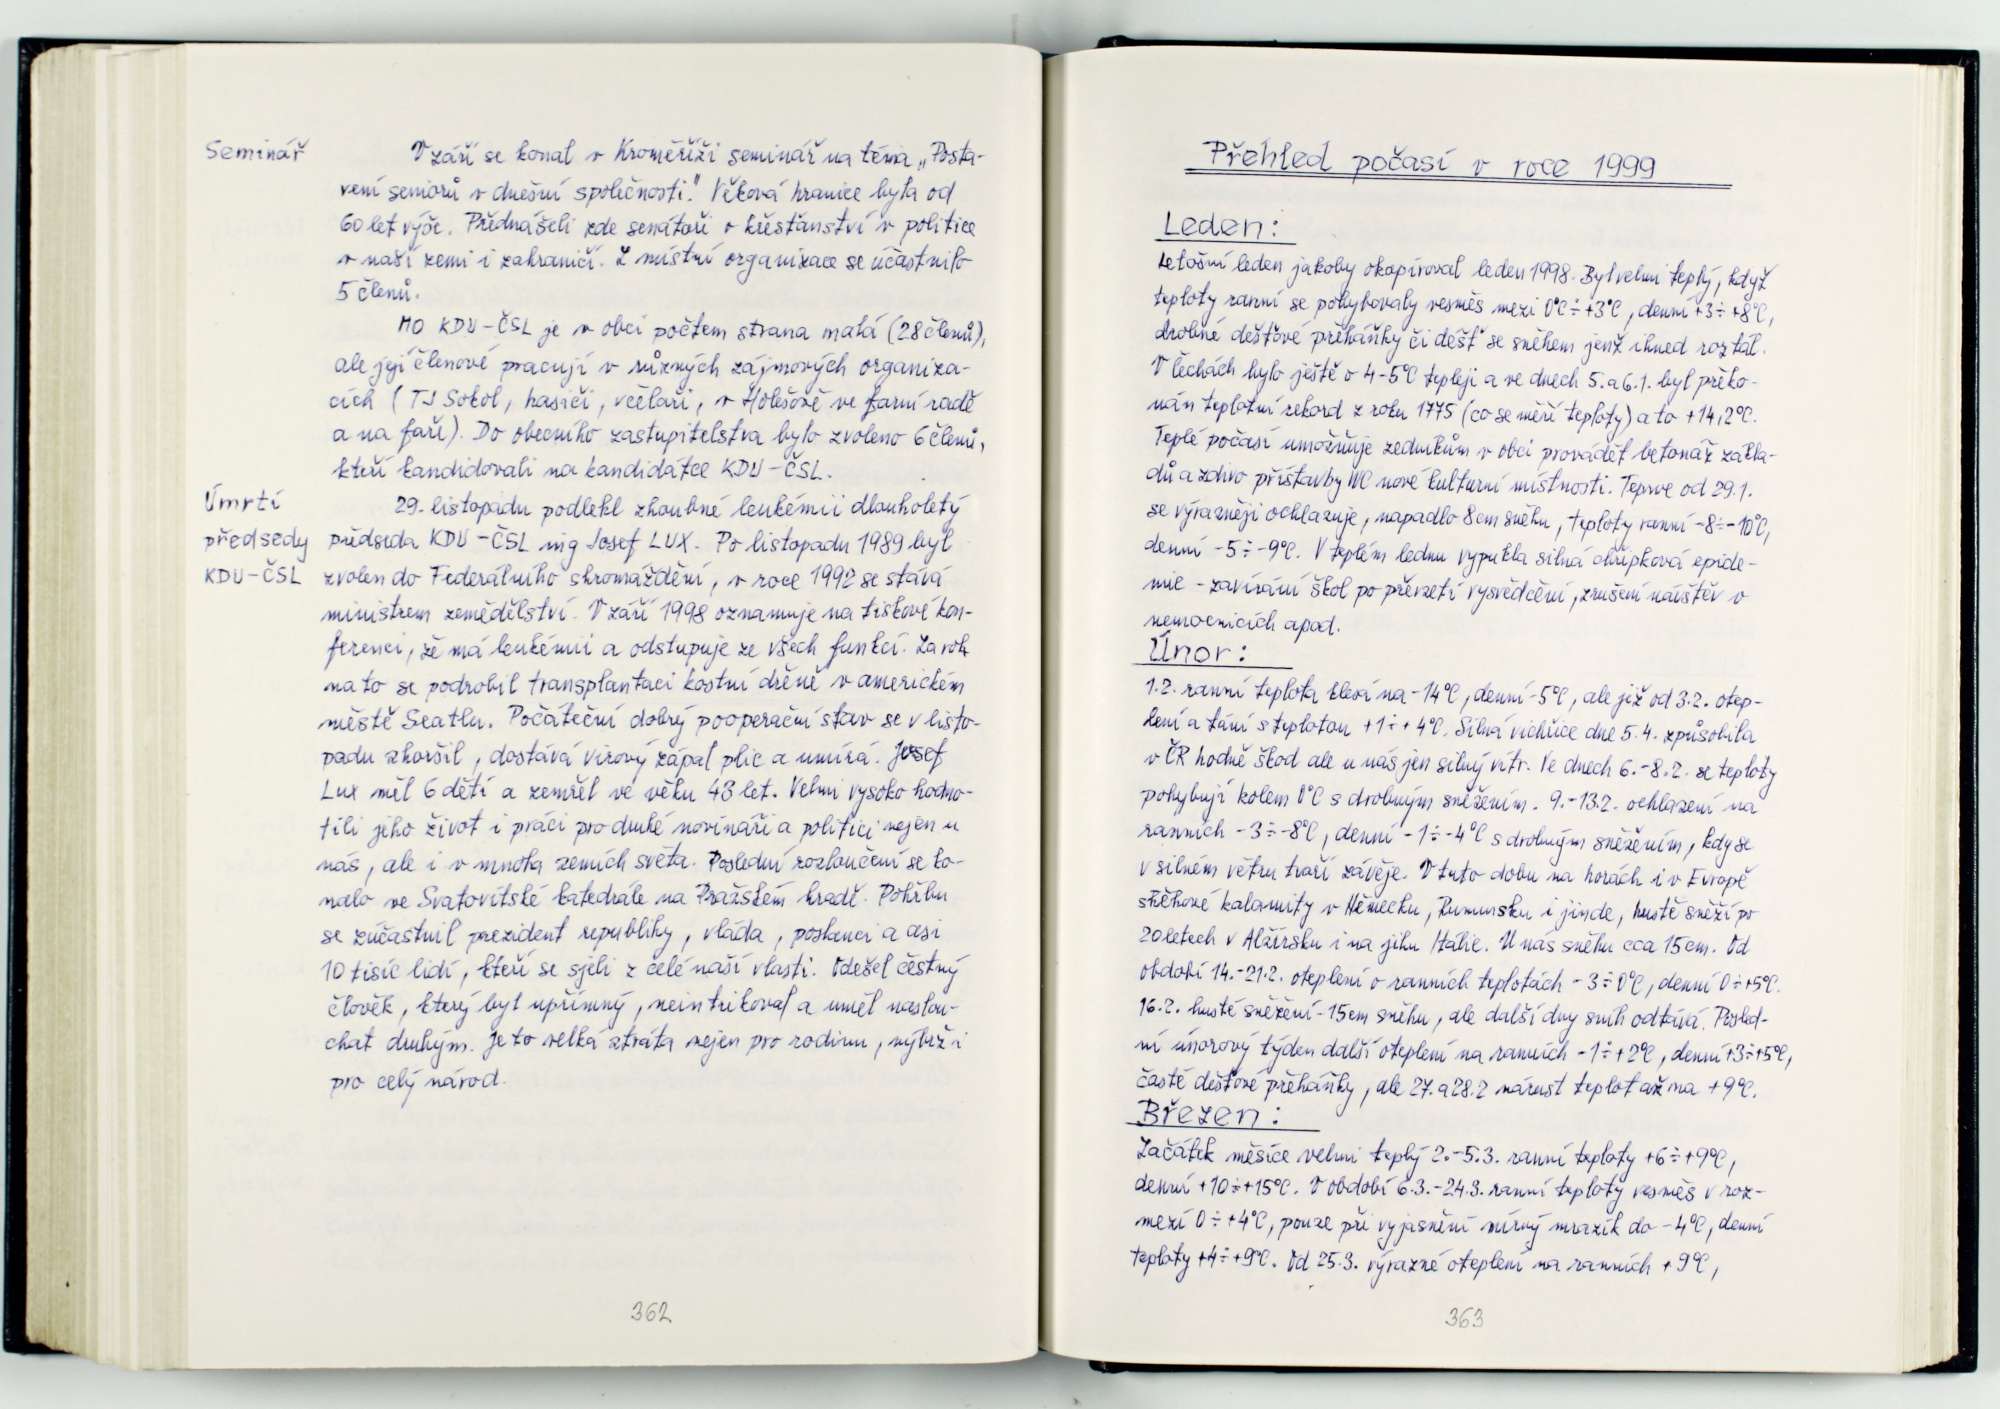 Seminář
V září se konal v Kroměříži seminář na téma „Posta-
vení seniorů v dnešní společnosti." Věková hranice byla od
60 let výše. Přednášeli zde senátoři o křesťanství v politice
v naší zemi i zahraničí. Z místní organizace se účastnilo
5 členů.
MO KDU-ČSL je v obci počtem strana malá (28 členů),
ale její členové pracují v různých zájmových organiza-
cích (TJ Sokol, hasiči, včelaři, v Holešově ve farní radě
a na faře). Do obecního zastupitelstva bylo zvoleno 6 členů,
kteří kandidovali na kandidátce KDU-ČSL.
Úmrtí
předsedy
KDU-ČSL
29. listopadu podlehl zhoubné leukémii dlouholetý
předseda KDU-ČSL ing Josef LUX. Po listopadu 1989 byl
zvolen do Federálního shromáždění, v roce 1992 se stává
ministrem zemědělství. V září 1998 oznamuje na tiskové kon-
ferenci, že má leukémii a odstupuje ze všech funkcí. Za rok
na to se podrobil transplantaci kostní dřeně v americkém
městě Seatlu. Počáteční dobrý pooperační stav se v listo-
padu zhoršil, dostává virový zápal plic a umírá. Josef
Lux měl 6 dětí a zemřel ve věku 43 let. Velmi vysoko hodno-
tili jeho život i práci pro druhé novináři a politici nejen u
nás, ale i v mnoha zemích světa. Poslední rozloučení se ko-
nalo ve Svatovítské katedrále na Pražském hradě. Pohřbu
se zúčastnil prezident republiky, vláda, poslanci a asi
10 tisíc lidí, kteří se sjeli z celé naší vlasti. Odešel čestný
člověk, který byl upřímný, neintrikoval a uměl naslou-
chat druhým. Je to velká ztráta nejen pro rodinu, nýbrž i
pro celý národ.
362
Přehled počasí v roce 1999
Leden:
Letošní leden jakoby okopíroval leden 1998. Byl velmi teplý, když
teploty ranní se pohybovaly vesměs mezi 0°C ÷ +3°C, denní +3 ÷ +8°C,
drobné dešťové přeháňky či déšť se sněhem jenž ihned roztál.
V Čechách bylo ještě o 4-5°C tepleji a ve dnech 5. a 6.1. byl překo-
nán teplotní rekord z roku 1775 (co se měří teploty) a to +14,2°C.
Teplé počasí umožňuje zedníkům v obci provádět betonáž zákla-
dů a zdivo přístavby WC nové kulturní místnosti. Teprve od 29.1.
se výrazněji ochlazuje, napadlo 8 cm sněhu, teploty ranní -8 ÷ -10°C,
denní -5 ÷ -9°C. V teplém lednu vypukla silná chřipková epide-
mie - zavírání škol po převzetí vysvědčení, zrušení návštěv v
nemocnicích apod.
Únor:
1.2. ranní teplota klesá na -14°C, denní -5°C, ale již od 3.2. otep-
lení a tání s teplotou +1 ÷ +4°C. Silná vichřice dne 5.4. způsobila
v ČR hodně škod ale u nás jen silný vítr. Ve dnech 6.-8.2. se teploty
pohybují kolem 0°C s drobným sněžením. 9.-13.2. ochlazení na
ranních -3 ÷ -8°C, denní -1 ÷ -4°C s drobným sněžením, kdy se
v silném větru tvoří závěje. V tuto dobu na horách i v Evropě
sněhové kalamity v Německu, Rumunsku i jinde, hustě sněží po
20 letech v Alžírsku i na jihu Itálie. U nás sněhu cca 15 cm. Od
období 14.-21.2. oteplení o ranních teplotách -3 ÷ 0°C, denní 0 ÷ +5°C.
16.2. husté sněžení - 15 cm sněhu, ale další dny sníh odtává. Posled-
ní únorový týden další oteplení na ranních -1 ÷ +2°C, denní +3 ÷ +5°C,
časté dešťové přeháňky, ale 27. a 28.2 nárust teplot až na +9°C.
Březen:
Začátek měsíce velmi teplý 2.-5.3. ranní teploty +6 ÷ +9°C,
denní +10 ÷ +15°C. V období 6.3.-24.3. ranní teploty vesměs v roz-
mezí 0 ÷ +4°C, pouze při vyjasnění mírný mrazík do -4°C, denní
teploty +4 ÷ +9°C. Od 25.3. výrazné oteplení na ranních +9°C,
363